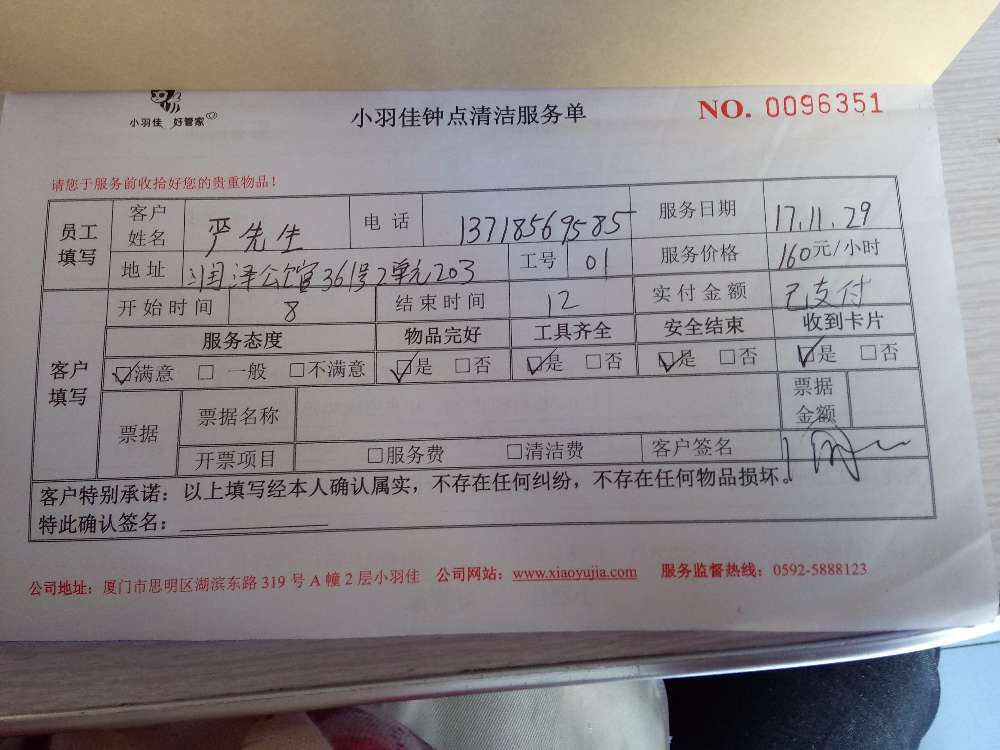 小羽佳 好管家
小羽佳钟点清洁服务单
NO. 0096351
请您于服务前收拾好您的贵重物品！
员工填写 客户姓名 严先生 电话 13718569585 服务日期 17.11.29
地址 润泽公馆361号2单元203 工号 01 服务价格 160元/小时
客户填写 开始时间 8 结束时间 12 实付金额 已支付
服务态度 物品完好 工具齐全 安全结束 收到卡片
☑满意 □ 一般 □不满意 ☑是 □否 ☑是 □否 ☑是 □否 ☑是 □否
票据 票据名称 票据金额
开票项目 □服务费 □清洁费 客户签名
客户特别承诺：以上填写经本人确认属实，不存在任何纠纷，不存在任何物品损坏。
特此确认签名：
公司地址：厦门市思明区湖滨东路 319 号 A 幢 2 层小羽佳 公司网站：www.xiaoyujia.com 服务监督热线：0592-5888123